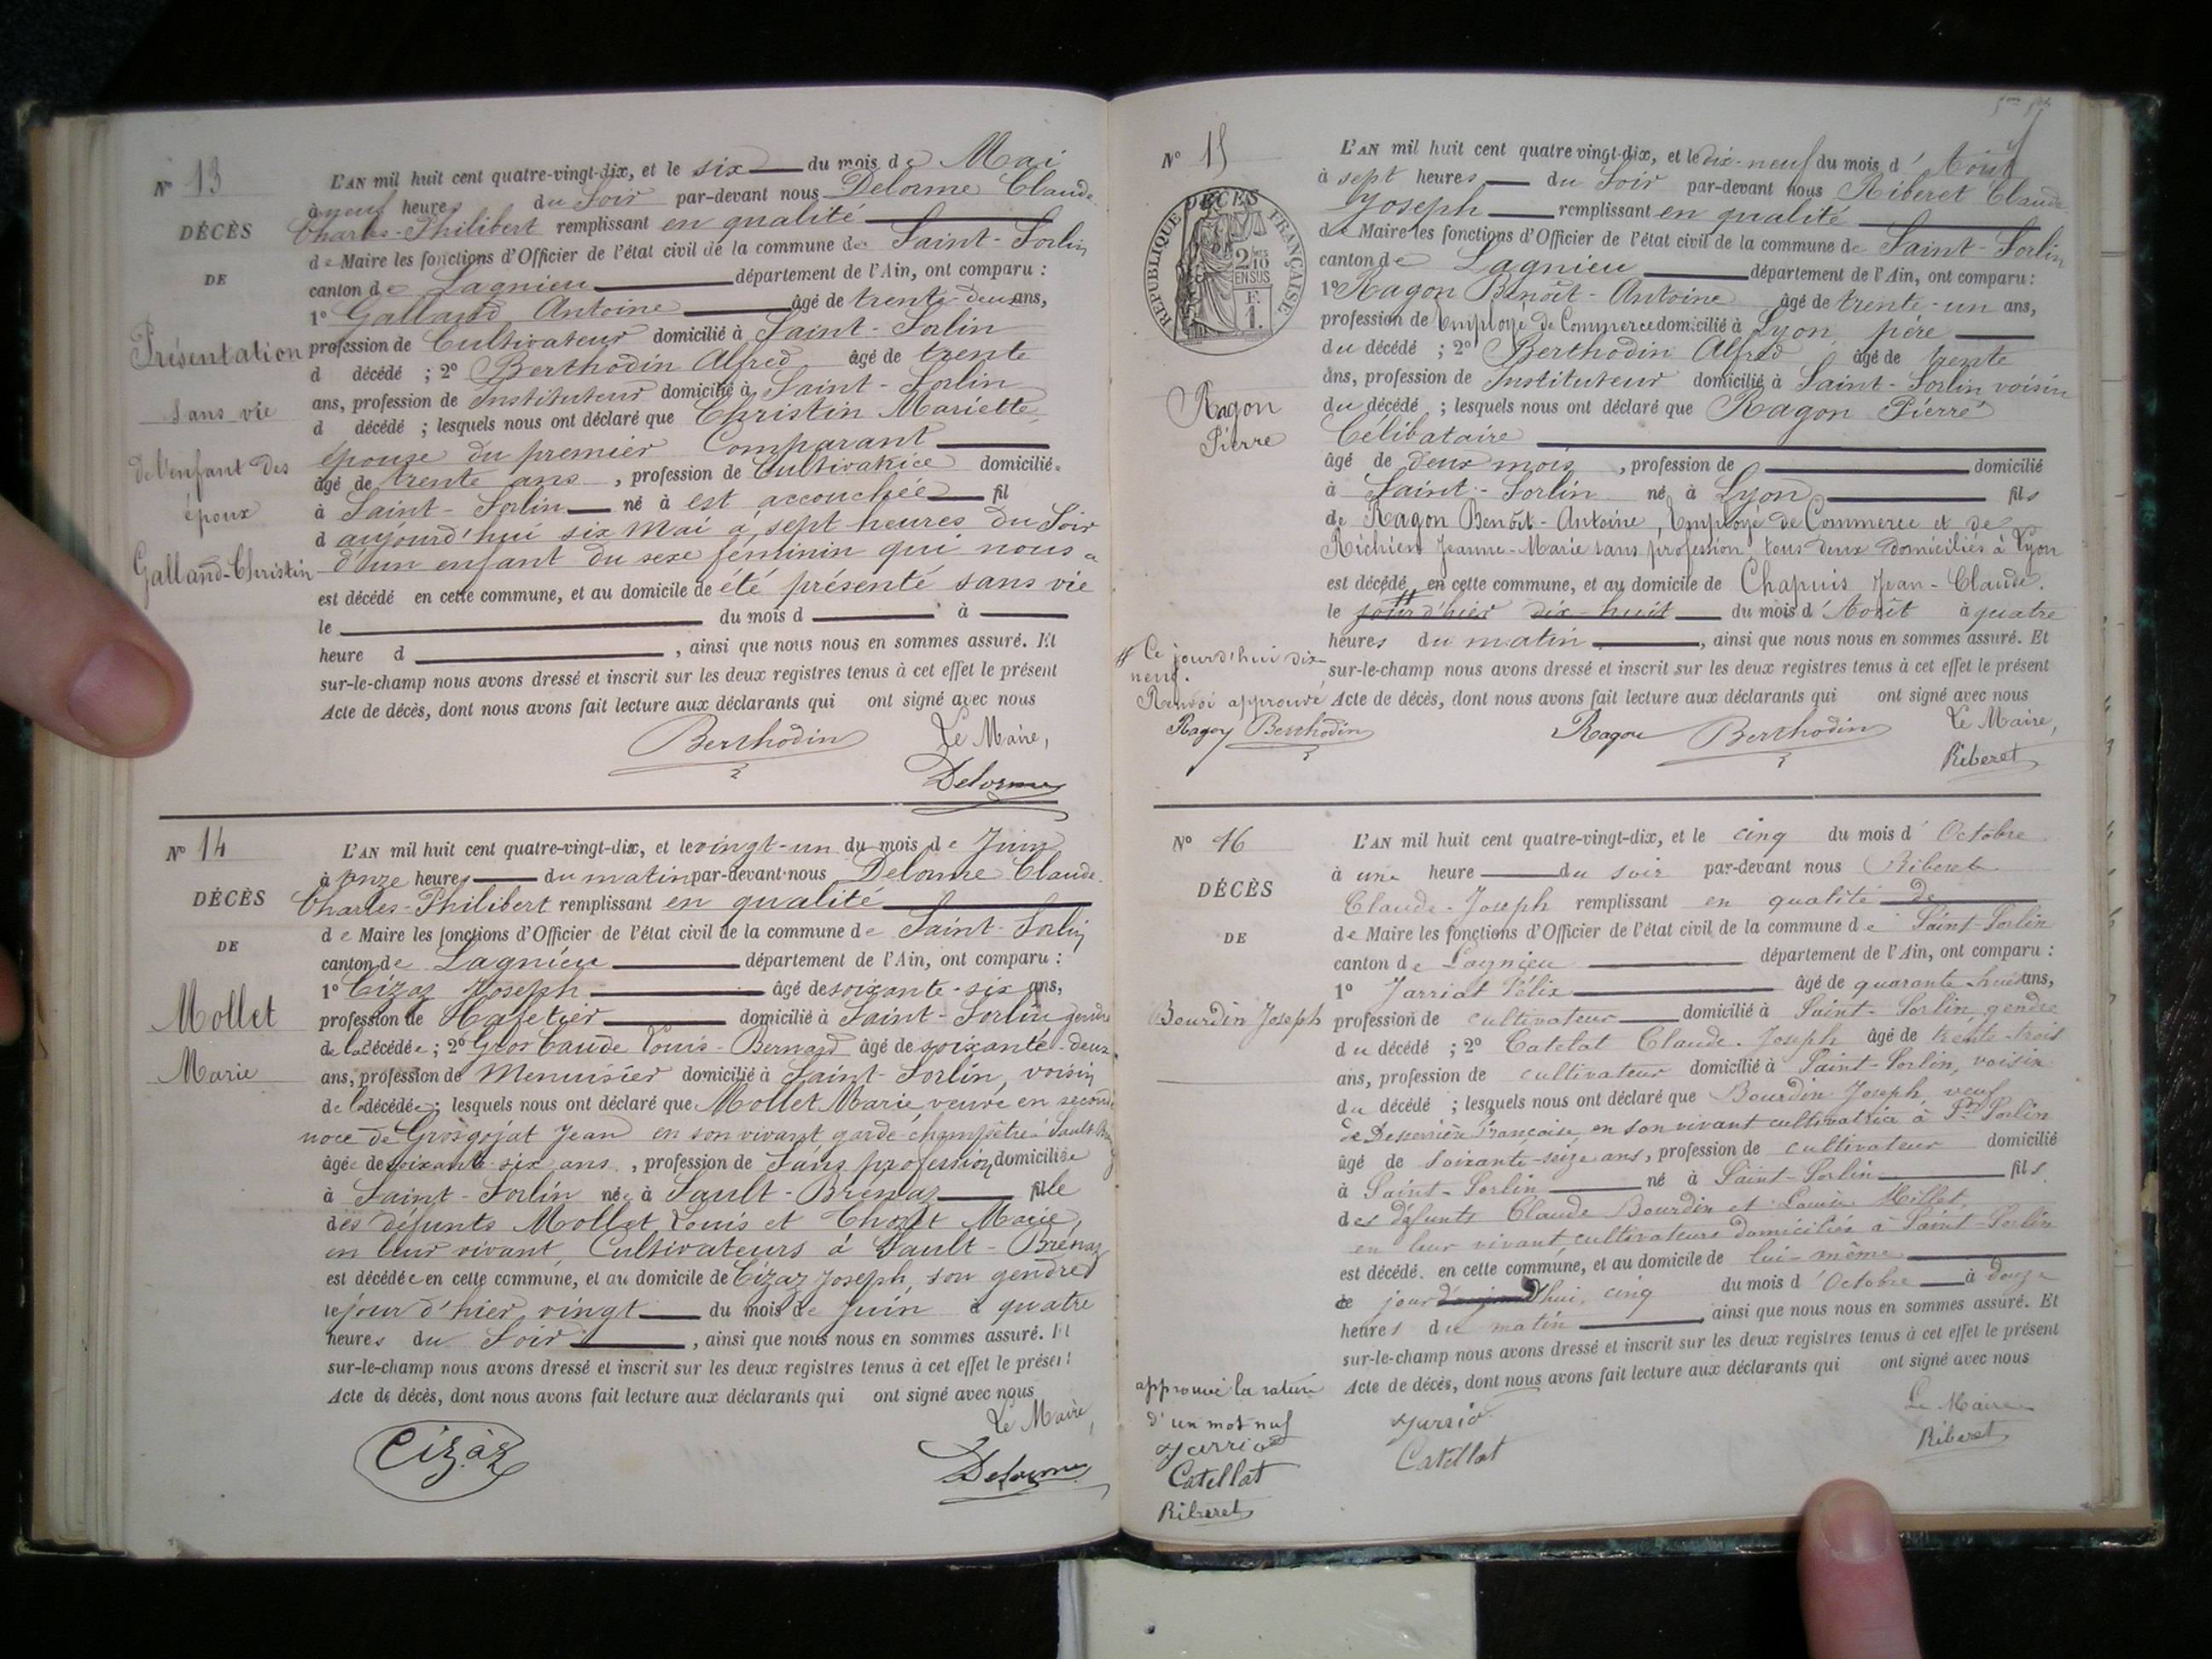 N° 13
DÉCÈS
DE
Présentation
sans vie
de l'enfant des
époux
Galland-Christin
L'AN mil huit cent quatre-vingt-dix, et le six du mois de Mai
à neuf heures du Soir par-devant nous Delorme Claude-
Charles-Philibert remplissant en qualité
de Maire les fonctions d'Officier de l'état civil de la commune de Saint-Sorlin
canton de Lagnieu département de l'Ain, ont comparu :
1° Galland Antoine âgé de trente-deux ans,
profession de Cultivateur domicilié à Saint-Sorlin
d décédé ; 2° Berthodin Alfred âgé de trente
ans, profession de Instituteur domicilié à Saint-Sorlin
d décédé ; lesquels nous ont déclaré que Christin Mariette
épouse du premier Comparant
âgé de trente ans, profession de Cultivatrice domicilié
à Saint-Sorlin né à est accouchée fil
d aujourd'hui six Mai à sept heures du Soir
d'un enfant du sexe féminin qui nous a
est décédé en cette commune, et au domicile de été présenté sans vie
le du mois d à
heure d , ainsi que nous nous en sommes assuré. Et
sur-le-champ nous avons dressé et inscrit sur les deux registres tenus à cet effet le présent
Acte de décès, dont nous avons fait lecture aux déclarants qui ont signé avec nous
Berthodin Le Maire,
Delorme
N° 14
DÉCÈS
DE
Mollet
Marie
L'AN mil huit cent quatre-vingt-dix, et le vingt-un du mois de Juin
à onze heures du matin par-devant nous Delorme Claude-
Charles-Philibert remplissant en qualité
de Maire les fonctions d'Officier de l'état civil de la commune de Saint-Sorlin
canton de Lagnieu département de l'Ain, ont comparu :
1° Cizaz Joseph âgé de soixante-six ans,
profession de Cafetier domicilié à Saint-Sorlin gendre
de la décédée ; 2° Louis-Bernard âgé de soixante-deux
ans, profession de Menuisier domicilié à Saint-Sorlin, voisin
de la décédée ; lesquels nous ont déclaré que Mollet Marie, veuve en seconde
noce de Grosgojat Jean en son vivant garde-champêtre à Sault-Brénaz
âgée de soixante-six ans, profession de Sans profession domiciliée
à Saint-Sorlin née à Sault-Brénaz fille
des défunts Mollet Louis et Marie,
en leur vivant, Cultivateurs à Sault-Brénaz
est décédée en cette commune, et au domicile de Cizaz Joseph, son gendre
le jour d'hier vingt du mois de Juin à quatre
heures du Soir , ainsi que nous nous en sommes assuré. Et
sur-le-champ nous avons dressé et inscrit sur les deux registres tenus à cet effet le présent
Acte de décès, dont nous avons fait lecture aux déclarants qui ont signé avec nous
Le Maire,
Cizaz Delorme
N° 15
RÉPUBLIQUE FRANÇAISE
DÉCÈS
2 MES
10
EN SUS
F.
1.
Ragon
Pierre
L'AN mil huit cent quatre vingt-dix, et le dix-neuf du mois d'Août
à sept heures du Soir par-devant nous Riberet Claude
Joseph remplissant en qualité
de Maire les fonctions d'Officier de l'état civil de la commune de Saint-Sorlin
canton de Lagnieu département de l'Ain, ont comparu :
1° Ragon Benoît-Antoine âgé de trente-un ans,
profession de Employé de Commerce domicilié à Lyon, père
du décédé ; 2° Berthodin Alfred âgé de trente
ans, profession de Instituteur domicilié à Saint-Sorlin voisin
du décédé ; lesquels nous ont déclaré que Ragon Pierre
Célibataire
âgé de deux mois, profession de domicilié
à Saint-Sorlin né à Lyon fils
de Ragon Benoît-Antoine, Employé de Commerce et de
Jeanne-Marie sans profession, tous deux domiciliés à Lyon
est décédé en cette commune, et au domicile de Chapuis Jean-Claude.
le jour d'hier dix-huit du mois d'Août à quatre
heures du matin , ainsi que nous nous en sommes assuré. Et
sur-le-champ nous avons dressé et inscrit sur les deux registres tenus à cet effet le présent
Acte de décès, dont nous avons fait lecture aux déclarants qui ont signé avec nous
Ce jourd'hui dix-
neuf.
Renvoi approuvé
Ragon Berthodin
Ragon Berthodin Le Maire,
Riberet
N° 16
DÉCÈS
DE
Bourdin Joseph
L'AN mil huit cent quatre-vingt-dix, et le cinq du mois d'Octobre
à une heure du soir par-devant nous Riberet
Claude-Joseph remplissant en qualité de
de Maire les fonctions d'Officier de l'état civil de la commune de Saint-Sorlin
canton de Lagnieu département de l'Ain, ont comparu :
1° Jarriat Félix âgé de quarante-huit ans,
profession de cultivateur domicilié à Saint-Sorlin gendre
du décédé ; 2° Catelat Claude-Joseph âgé de trente-trois
ans, profession de cultivateur domicilié à Saint-Sorlin, voisin
du décédé ; lesquels nous ont déclaré que Bourdin Joseph, veuf
de Françoise, en son vivant cultivatrice à St Sorlin
âgé de soixante-seize ans, profession de cultivateur domicilié
à Saint-Sorlin né à Saint-Sorlin fils
des défunts Claude Bourdin et Louise Millet,
en leur vivant cultivateurs domiciliés à Saint-Sorlin
est décédé en cette commune, et au domicile de lui-même
ce jour d'hui, cinq du mois d'Octobre à douze
heures du matin , ainsi que nous nous en sommes assuré. Et
sur-le-champ nous avons dressé et inscrit sur les deux registres tenus à cet effet le présent
Acte de décès, dont nous avons fait lecture aux déclarants qui ont signé avec nous
approuvé la rature
d'un mot nul
Catellat
Riberet
Catellat
Le Maire
Riberet